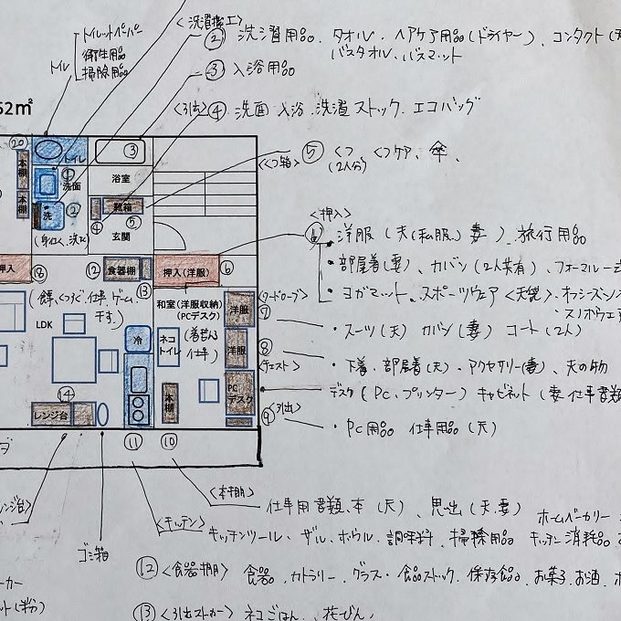 トイレットペーパー
衛生用品
掃除用品
トイレ
<洗濯機上>
② 洗濯用品、タオル、ヘアケア用品(ドライヤー)、コンタクト
バスタオル、バスマット
③ 入浴用品
<引出>④ 洗面 入浴、洗濯ストック、エコバッグ
<くつ箱> ⑤ くつ くつケア、傘、
(2人分)
52㎡
⑳
本棚
本棚
トイレ
①
洗面
洗
②
(身仕く、洗たく)
③
浴室
④
靴箱
⑤
玄関
<押入>
⑥ 洋服(夫(私服)、妻)、旅行用品
・部屋着(妻)、カバン(2人共有)、フォーマル一式
・ヨガマット、スポーツウェア<夫妻>、オフシーズン
スノボウェア
押入
⑱
⑫
食器棚
⑬
押入(洋服)
⑥
和室(洋服収納)
(PCデスク)
<ワードローブ>
⑦
・スーツ(夫) カバン(妻) コート(2人)
LDK
冷
ネコ
トイレ
仕事)
洋服
洋服
⑧
<チェスト>
・下着、部屋着(夫)・アクセサリー(妻)、夫の物
PC
デスク
デスク(PC、プリンター) キャビネット(妻 仕事書類
⑨
<引出>
・PC用品 仕事用品(夫)
⑭
レンジ台
本棚
⑪
⑩
ゴミ箱
<本棚>
仕事用書類、本(夫)、思い出(夫、妻)
<キッチン>
キッチンツール、ザル、ボウル、調味料、掃除用品 キッチン消耗品
ホームベーカリー
⑫<食器棚> 食器、カトラリー、グラス・食品ストック、保存食品、お菓子、お酒、
⑬<引出ストッカー> ネコごはん、花びん、